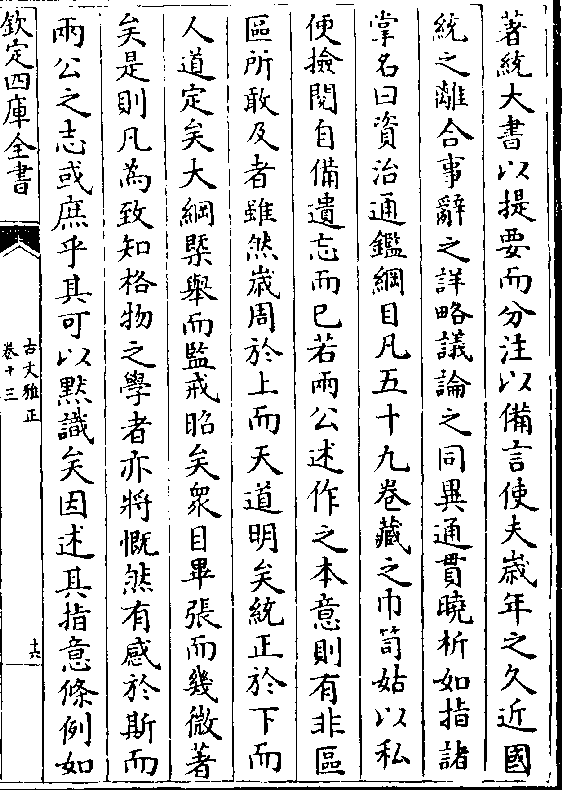 著統大書以提要而分注以備言使夫歳年之久近國
統之離合事辭之詳略議論之同異通貫曉析如指諸
掌名曰資治通鑑綱目凡五十九卷藏之巾笥姑以私
便撿閱自備遺忘而已若兩公述作之本意則有非區
區所敢及者雖然歳周於上而天道明矣統正於下而
人道定矣大綱槩舉而監戒昭矣衆目畢張而幾微著
矣是則凡為致知格物之學者亦將慨然有感於斯而
兩公之志或庶乎其可以黙識矣因述其指意條例如
欽定四庫全書
古文雅正
卷十三
十六